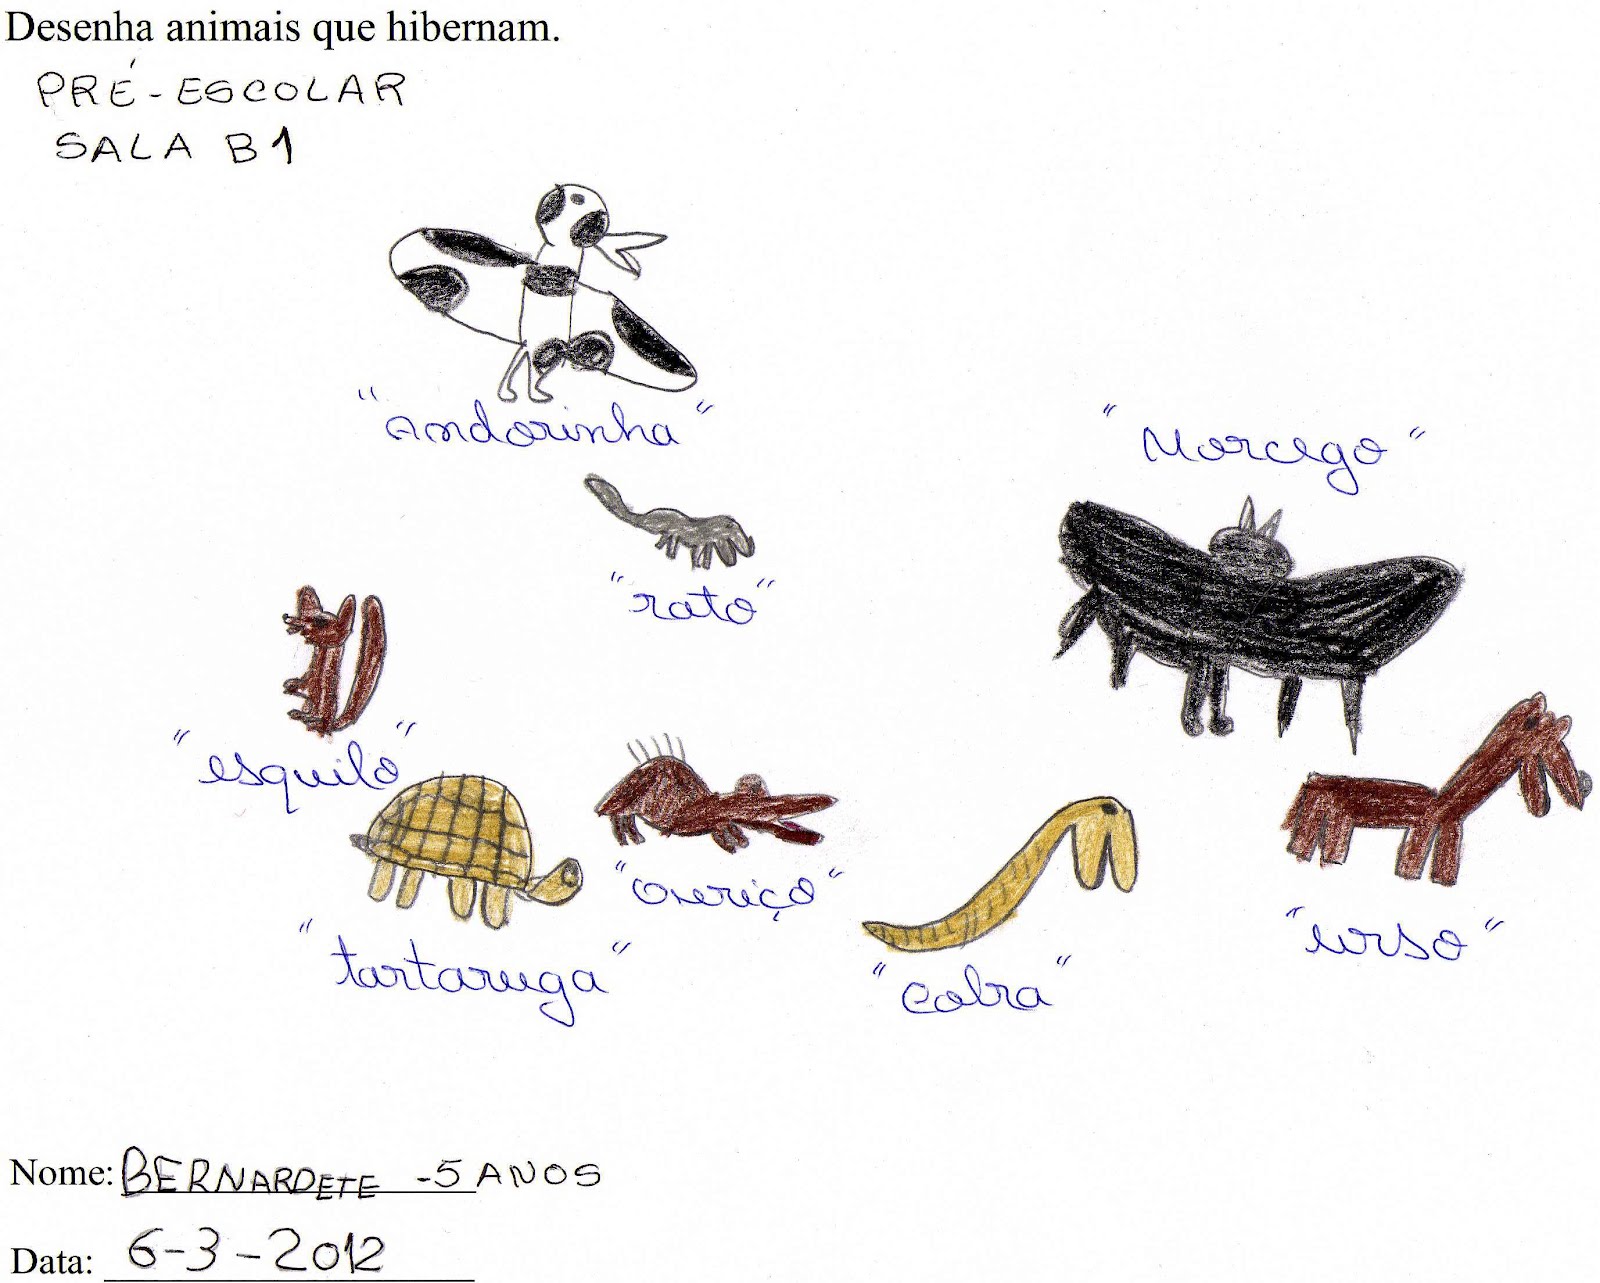 Desenha animais que hibernam.
PRÉ-ESCOLAR
SALA B1
"Andorinha"
"Morcego"
"rato"
"esquilo"
"ouriço"
"tartaruga"
"cobra"
"urso"
Nome: BERNARDETE - 5 ANOS
Data: 6-3-2012